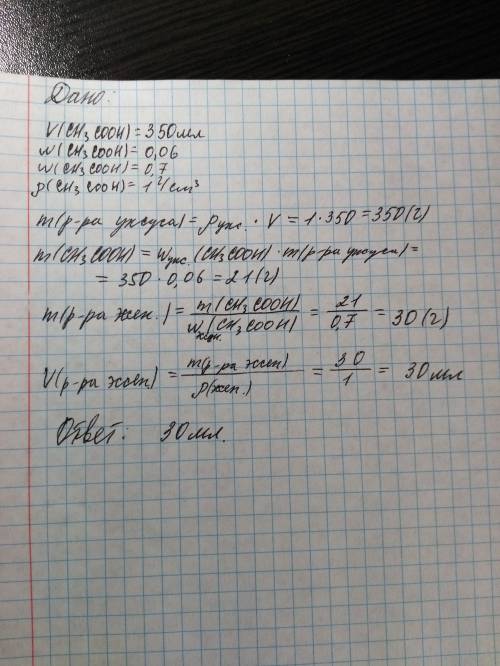 Дано:
V(CH3COOH) = 350 мл
w(CH3COOH) = 0,06
w(CH3COOH) = 0,7
ρ(CH3COOH) = 1 г/см³
m(р-ра уксуса) = ρукс. · V = 1 · 350 = 350 (г)
m(CH3COOH) = wукс. (CH3COOH) · m(р-ра уксуса) =
= 350 · 0,06 = 21 (г)
m(р-ра жен.) = m(CH3COOH) / wжен.(CH3COOH) = 21 / 0,7 = 30 (г)
V(р-ра жен.) = m(р-ра жен) / ρ(жен.) = 30 / 1 = 30 мл
Ответ: 30 мл.